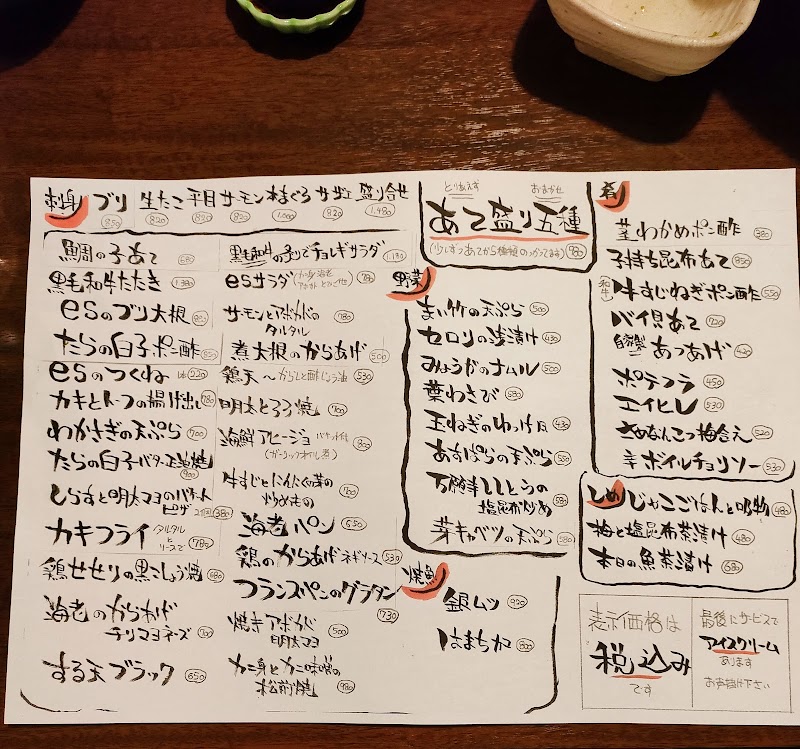 刺身 ブリ 生たこ 平目 サーモン 本まぐろ サザエ 盛り合せ
850 820 820 820 1,000 820 1,480
鯛の子あて 680
黒毛和牛たたき 1,380
esのブリ大根
たらの白子ポン酢 850
esのつくね 1本220
カキとトーフの揚げ出し 780
わかさぎの天ぷら 700
たらの白子バター正油焼 900
しらすと明太マヨのバケットピザ 2個380
カキフライ タルタルとソースで 780
鶏せせりの黒こしょう焼 680
海老のからあげチリマヨネーズ 700
する天ブラック 650
黒毛和牛の炙りでチョレギサラダ 1,180
esサラダ 780
サーモンとアボカドのタルタル 780
煮大根のからあげ 500
鶏天〜からしと酢じょう油 530
明太とろろ焼 700
海鮮アヒージョ バケット付 (ガーリックオイル煮) 800
牛すじとにんにくの芽の炒めもの 700
海老パン 650
鶏のからあげネギソース 530
フランスペンのグラタン 730
焼きアボカド明太マヨ 500
カニ身とカニ味噌の松前焼 980
とりあえず おまかせ
あて盛り五種
980
野菜
まい竹の天ぷら 500
セロリの浅漬け 430
みょうがのナムル 500
葉わさび 580
玉ねぎのわっけ 430
あすぱらの天ぷら 550
万願寺ししとうの塩昆布炒め 550
芽キャベツの天ぷら 580
焼魚
銀ムツ 920
はまちカマ 800
肴
茎わかめポン酢 380
子持ち昆布あて 850
和牛
牛すじねぎポン酢 550
バイ貝あて 720
自家製あつあげ 420
ポテフラ 450
エイヒレ 530
さめなんこつ梅合え 520
辛ボイルチョリソー 530
しめ
じゃこごはんと吸物 480
梅と塩昆布茶漬け 480
本日の魚茶漬け 680
表示価格は
税込み
です
最後にサービスで
アイスクリーム
あります
お声掛け下さい